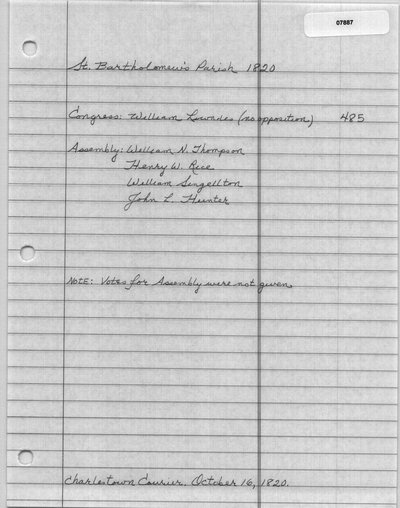 07887
St. Bartholomew's Parish 1820
Congress: William Lowndes (no opposition) 485
Assembly: William N. Thompson
Henry W. Rice
William Singellton
John L. Hunter
NOTE: Votes for Assembly were not given.
Charlestown Courier. October 16, 1820.